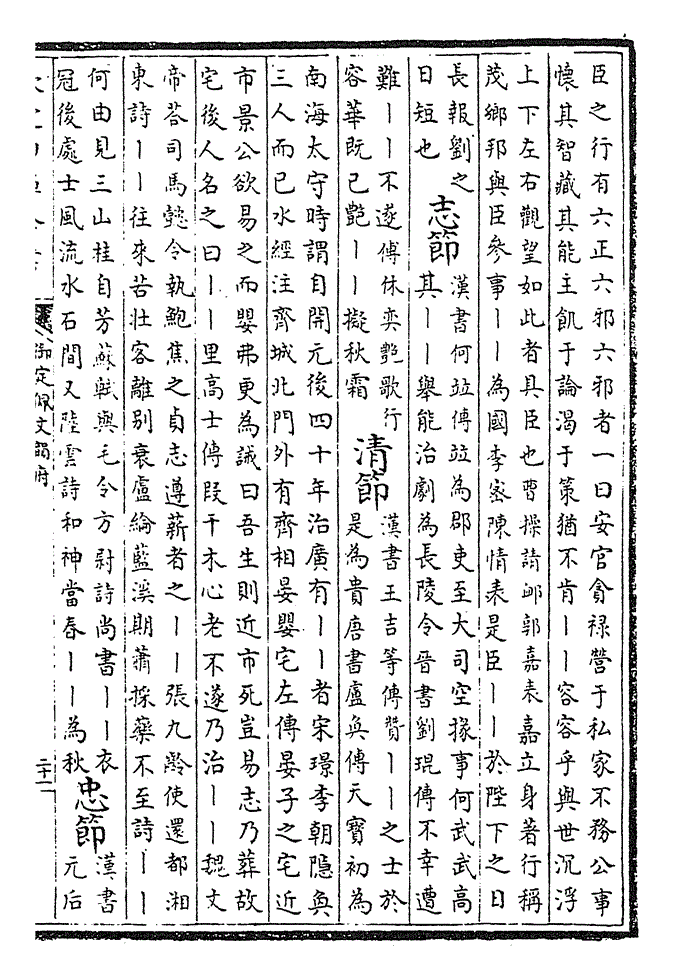 臣之行有六正六邪六邪者一曰安官貪祿營于私家不務公事
懷其智藏其能主飢于論渴于策猶不肯丨丨容容乎與世沉浮
上下左右觀望如此者具臣也曹操請邺郭嘉表嘉立身著行稱
茂鄉邦與臣參事丨丨為國李宻陳情表是臣丨丨於陛下之日
長報劉之
日短也
志節
漢書何竝傳竝為郡吏至大司空掾事何武武高
其丨丨舉能治劇為長陵令晉書劉琨傳不幸遭
難丨丨不遂傅休奕艶歌行
容華既已艶丨丨擬秋霜
清節
漢書王吉等傳贊丨丨之士於
是為貴唐書盧奐傳天寳初為
南海太守時謂自開元後四十年治廣有丨丨者宋璟李朝隱奐
三人而已水經注齊城北門外有齊相晏嬰宅左傳晏子之宅近
市景公欲易之而嬰弗更為誡曰吾生則近市死豈易志乃葬故
宅後人名之曰丨丨里高士傳段干木心老不遂乃治丨丨魏文
帝荅司馬懿令執鮑焦之貞志遵薪者之丨丨張九齡使還都湘
東詩丨丨往來苦壮容離别衰盧綸藍溪期蕭採藥不至詩丨丨
何由見三山桂自芳蘇軾與毛令方尉詩尚書丨丨衣
冠後處士風流水石間又陸雲詩和神當春丨丨為秋
忠節
漢書
元后
御定佩文韻府
二十二